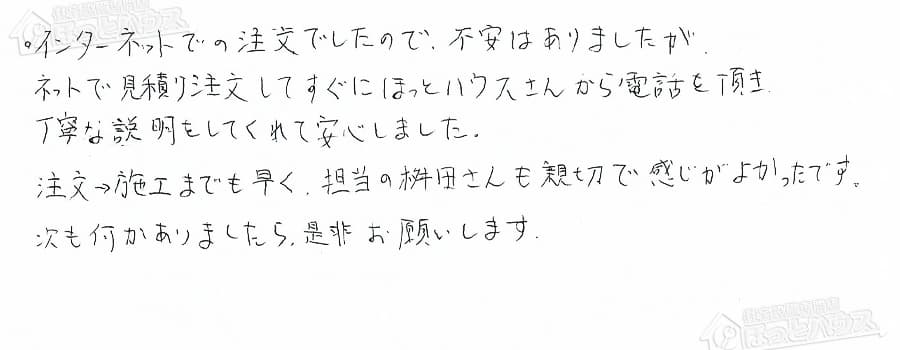 。インターネットでの注文でしたので、不安はありましたが、
ネットで見積り注文してすぐにほっとハウスさんから電話を頂き
丁寧な説明をしてくれて安心しました。
注文→施工までも早く、担当の桝田さんも親切で感じがよかったです。
次も何かありましたら、是非お願いします。
住宅設備専門店
ほっとハウス
住宅設備専門店
ほっとハウス